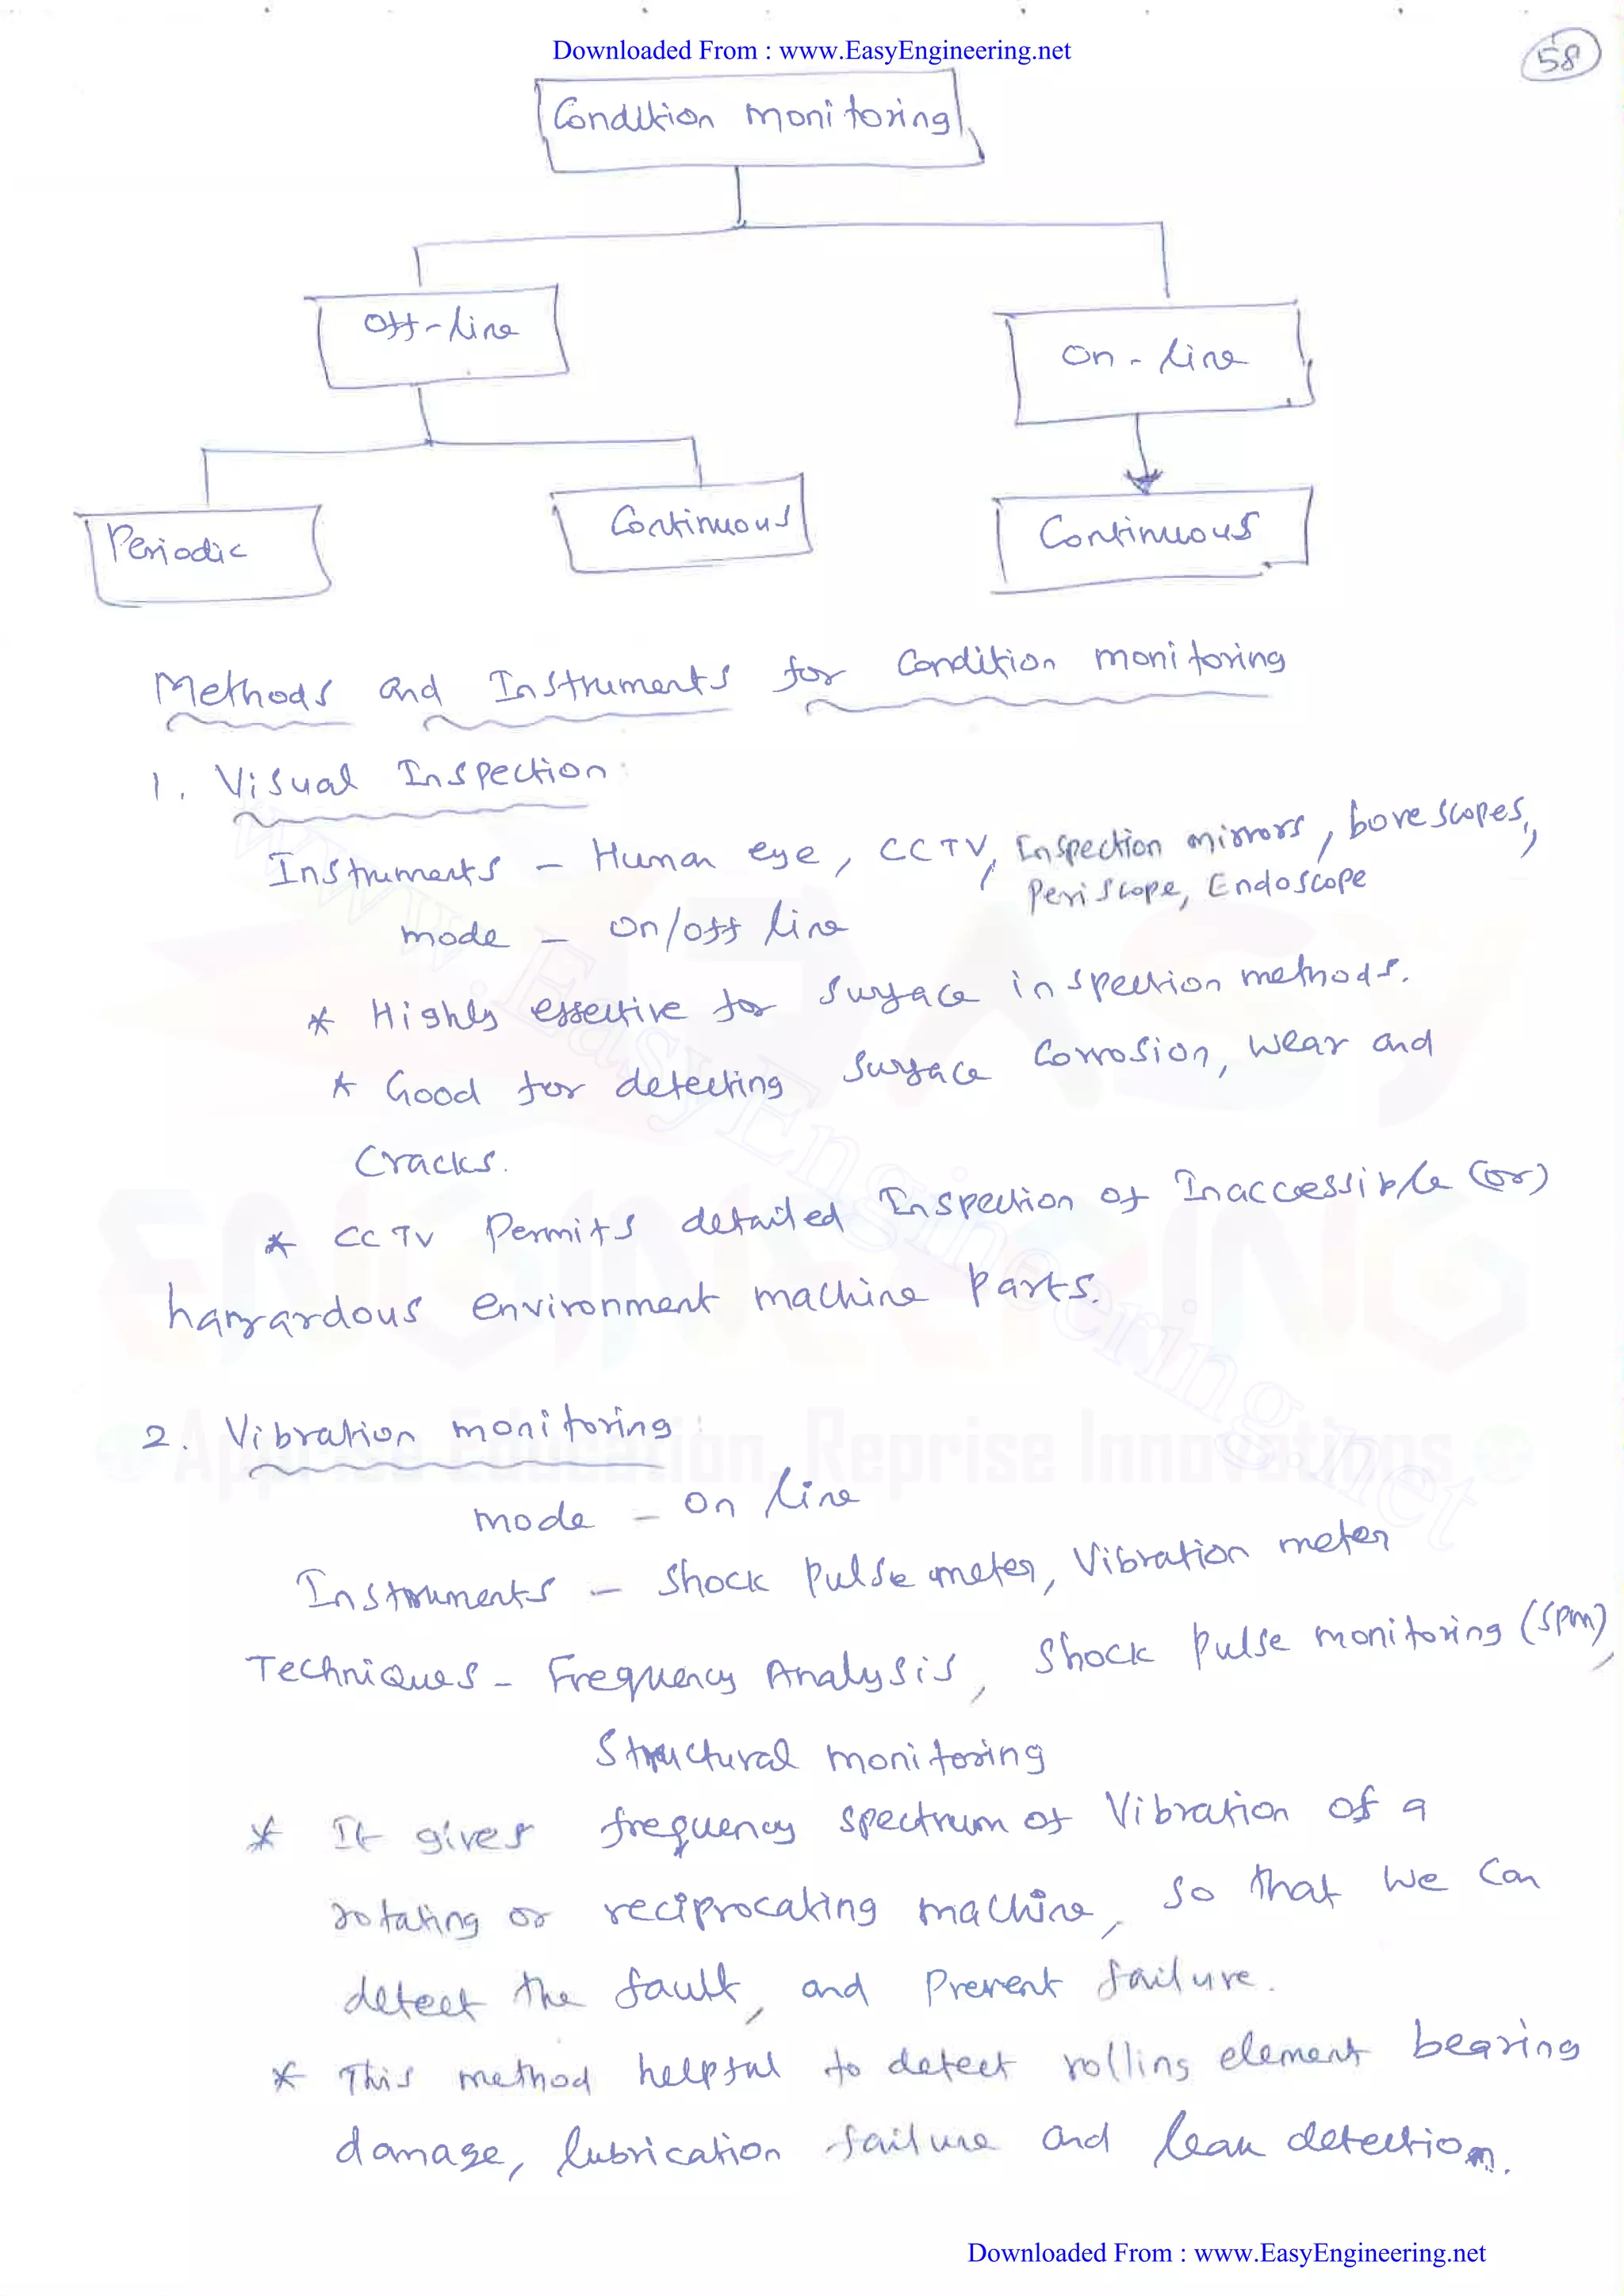 Downloaded From : www.EasyEngineering.net
58
Condition monitoring
Off-line
On-line
Periodic
Continuous
Continuous
Methods and Instruments for Condition monitoring
1. Visual Inspection
Instruments - Human eye, CCTV, Inspection mirrors, borescopes,
Periscope, Endoscope
mode - on/off line
* Highly effective for surface inspection methods.
* Good for detecting surface corrosion, wear and
cracks.
* CCTV Permits detailed Inspection of Inaccessible (or)
hazardous environment machine parts.
2. Vibration monitoring
mode - on line
Instruments - Shock pulse meter, Vibration meter
Techniques - Frequency Analysis, Shock pulse monitoring (SPM),
Structural monitoring
* It gives frequency spectrum of Vibration of a
rotating or reciprocating machine, so that we can
detect the fault, and prevent failure.
* This method helpful to detect rolling element bearing
damage, lubrication failure and leak detection.
www.EasyEngineering.net
ENGINEERING
Apprise Education, Reprise Innovations
Downloaded From : www.EasyEngineering.net